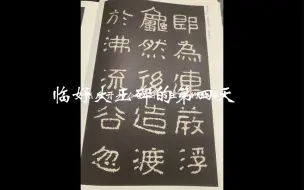 临好太王碑的第四天
即為連葭浮
龜然後造渡
於沸流谷忽